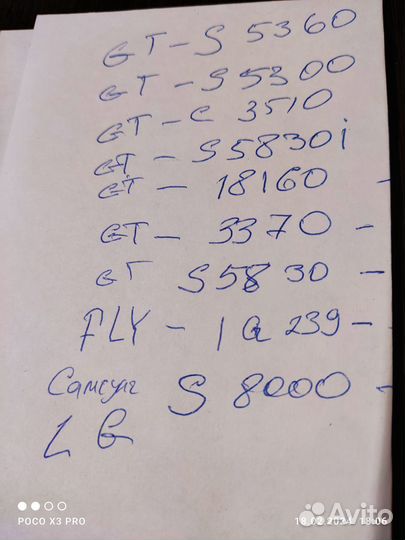 GT-S 5360
GT-S 5300
GT-C 3510
GT-S5830i
GT - 18160 -
GT - 3370 -
GT S5830 -
FLY - IQ 239 -
Самсунг S 8000 -
LG
POCO X3 PRO
18.02.2024 18:06
Avito